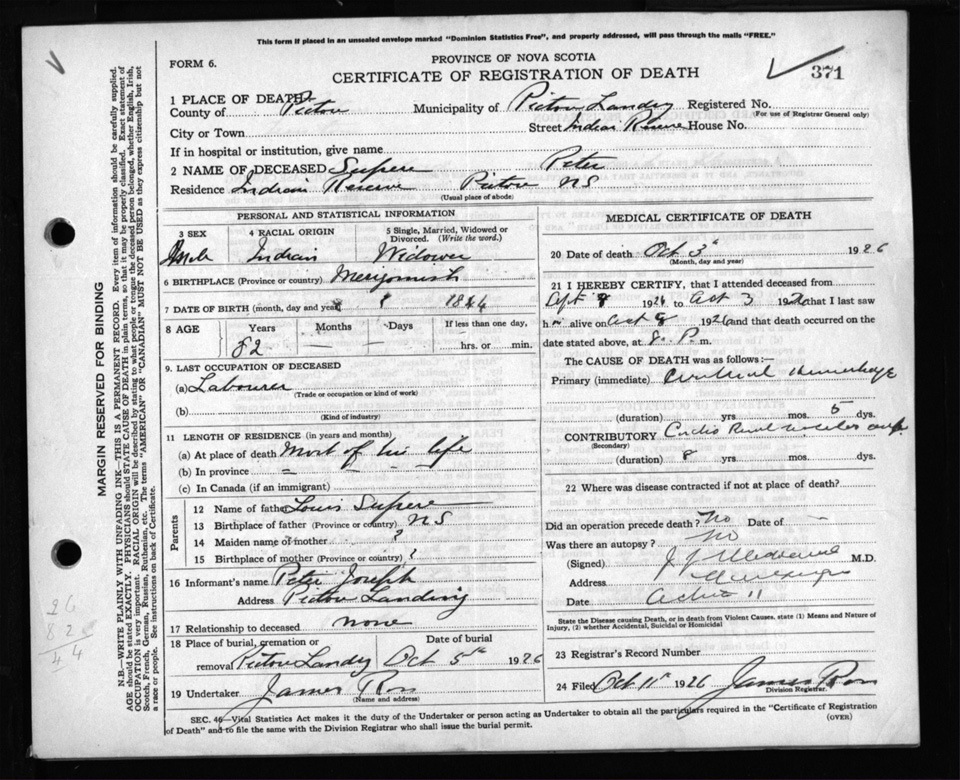 This form if placed in an unsealed envelope marked "Dominion Statistics Free", and properly addressed, will pass through the mails "FREE."
FORM 6.
PROVINCE OF NOVA SCOTIA
CERTIFICATE OF REGISTRATION OF DEATH
371
1 PLACE OF DEATH
County of Pictou Municipality of Pictou Landg Registered No.
(For use of Registrar General only)
City or Town Street Indian Reserve House No.
If in hospital or institution, give name
2 NAME OF DECEASED Supere Peter
Residence Indian Reserve Pictou NS
(Usual place of abode)
PERSONAL AND STATISTICAL INFORMATION
3 SEX 4 RACIAL ORIGIN 5 Single, Married, Widowed or Divorced. (Write the word.)
Male Indian Widower
6 BIRTHPLACE (Province or country) Merigomish
7 DATE OF BIRTH (month, day and year) 1844
8 AGE Years Months Days If less than one day,
82 — — hrs. or min.
9. LAST OCCUPATION OF DECEASED
(a) Labourer
(Trade or occupation or kind of work)
(b)
(Kind of industry)
11 LENGTH OF RESIDENCE (in years and months)
(a) At place of death Most of his life
(b) In province " " "
(c) In Canada (if an immigrant)
Parents
12 Name of father Louis Supere
13 Birthplace of father (Province or country) NS
14 Maiden name of mother ?
15 Birthplace of mother (Province or country) ?
16 Informant's name Peter Joseph
Address Pictou Landing
17 Relationship to deceased none
18 Place of burial, cremation or removal Pictou Landg Date of burial Oct 5th 1926
19 Undertaker James Ross
(Name and address)
MEDICAL CERTIFICATE OF DEATH
20 Date of death Oct 3rd 1926
(Month, day and year)
21 I HEREBY CERTIFY, that I attended deceased from
Sept 8 1926 to Oct 3 1926 that I last saw
h alive on Oct 1926 and that death occurred on the
date stated above, at 8. P. m.
The CAUSE OF DEATH was as follows:—
Primary (immediate) Cerebral Hemorrhage
(duration) yrs. mos. 5 dys.
CONTRIBUTORY Cardio Renal
(Secondary)
(duration) 8 yrs. mos. dys.
22 Where was disease contracted if not at place of death?
Did an operation precede death? No Date of —
Was there an autopsy? No
(Signed) M.D.
Address
Date 11
State the Disease causing Death, or in death from Violent Causes, state (1) Means and Nature of Injury, (2) whether Accidental, Suicidal or Homicidal
23 Registrar's Record Number
24 Filed Oct 11th 1926 James Ross
Division Registrar.
SEC. 46—Vital Statistics Act makes it the duty of the Undertaker or person acting as Undertaker to obtain all the particulars required in the "Certificate of Registration
of Death" and to file the same with the Division Registrar who shall issue the burial permit.
(OVER)
MARGIN RESERVED FOR BINDING
N.B.—WRITE PLAINLY WITH UNFADING INK—THIS IS A PERMANENT RECORD. Every item of information should be carefully supplied.
AGE should be stated EXACTLY. PHYSICIANS should STATE CAUSE OF DEATH in plain terms, so that it may be properly classified. Exact statement of
OCCUPATION is very important. RACIAL ORIGIN will be described by stating to what people or tongue the deceased person belonged, whether English, Irish,
Scotch, French, German, Russian, Ruthenian, etc. The terms "AMERICAN" OR "CANADIAN" MUST NOT BE USED as they express citizenship but not
a race or people. See instructions on back of Certificate.
26
82
44